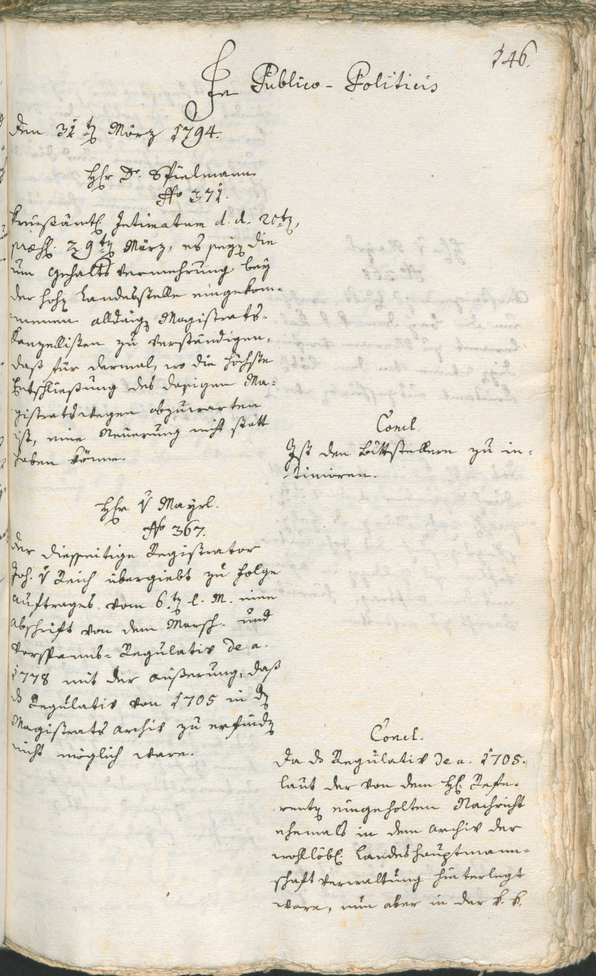 146.
In Publico-Politicis
den 31t März 1794.
Hhr Dr. Spielmann
No 371.
Kreisämtl. Intimatum d. d. 20t,
præs. 29t März, es seyn die
um Gehaltsvermehrung bey
der hohn Landesstelle eingekom-
menen alldaign Magistrats-
kanzellisten zu verständigen,
daß für dermal, wo die höchste
Entschließung des dasigen Ma-
gistrats wegen abzuwarten
ist, eine Neuerung nicht statt
haben könne.
Concl.
Ist den Bittstellern zu in-
timiren.
Hhr v Mayrl.
No 367.
Der diesseitige Registrator
Joh. v Reich übergiebt zu folge
Auftrages vom 6.t l. M. eine
Abschrift von dem Marsch- und
Vorspanns-Regulativ de a.
1778 mit der Äußerung, daß
ds Regulativ von 1705 in ds
Magistrats Archiv zu erfindn
nicht möglich ware.
Concl.
Da ds Regulativ de a. 1705.
laut der von dem Hl. Refe-
rentn eingeholten Nachricht
ehemals in dem Archiv der
wohllöbl. Landeshauptmann-
schaft Verwaltung hinterlegt
ware, nun aber in der k. k.